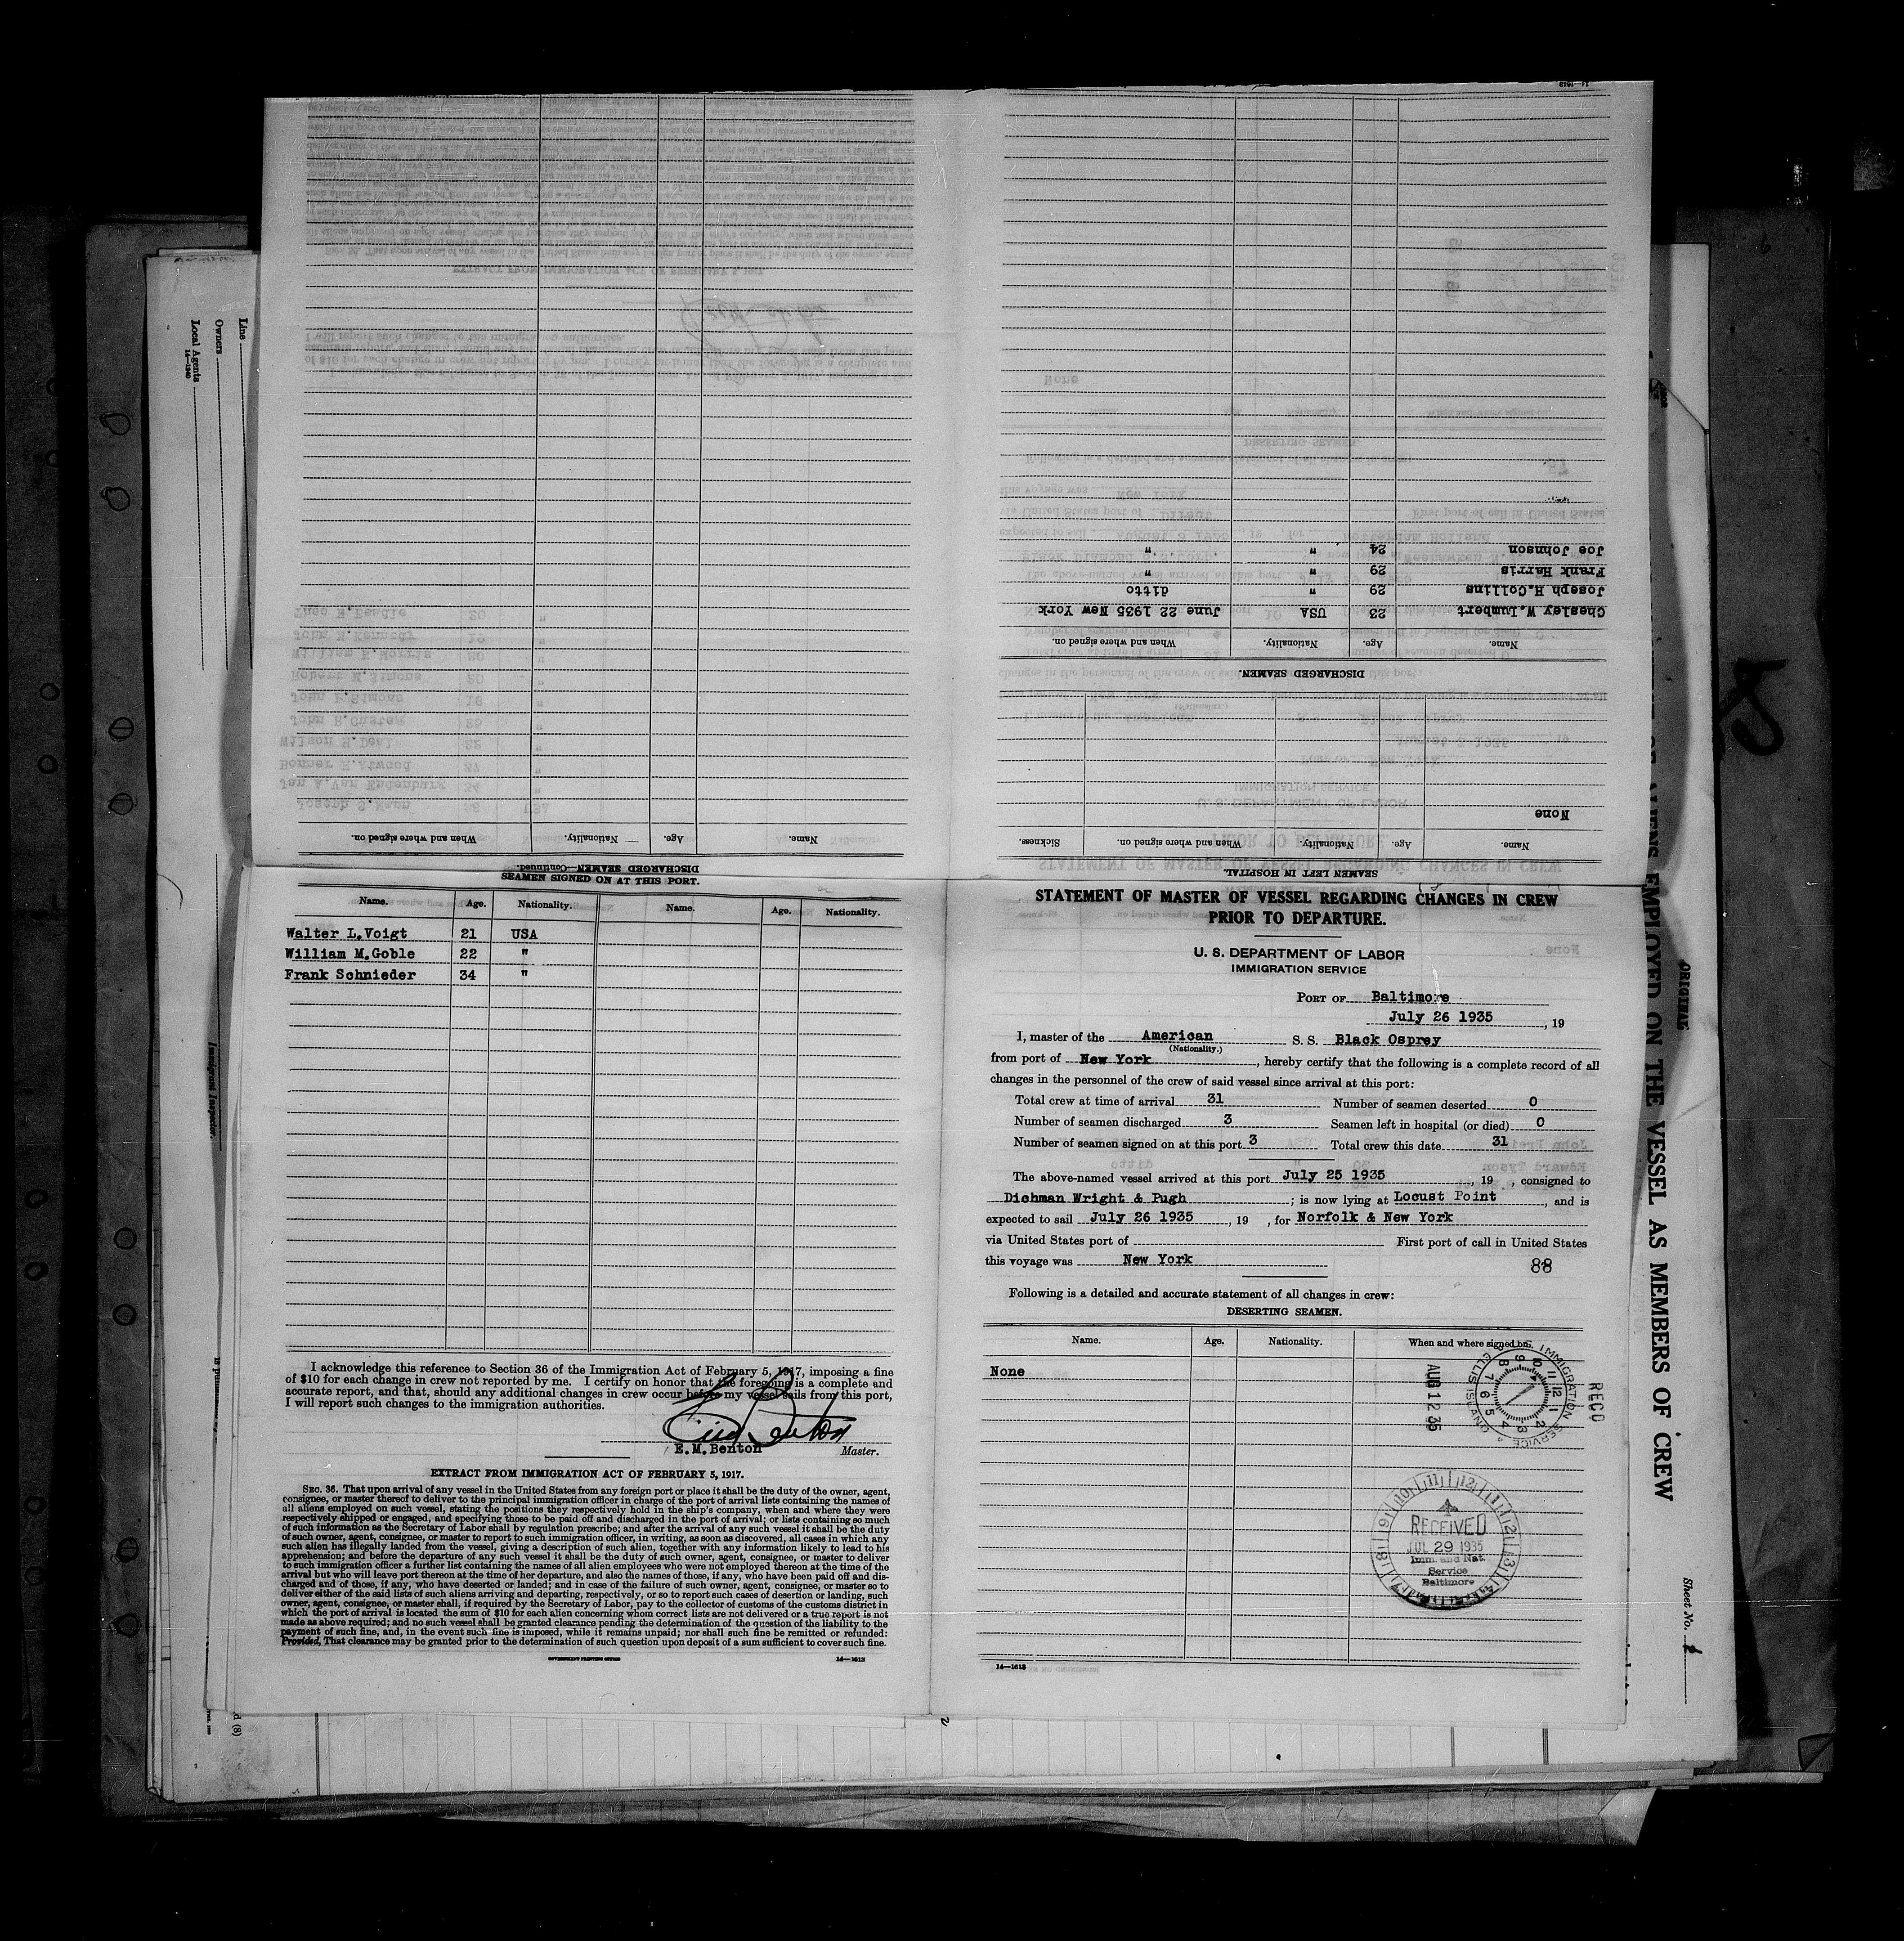 DISCHARGED SEAMEN.
Name. Age. Nationality. When and where signed on.
Chesley W.Lumbert 23 USA June 22 1935 New York
Joseph H.Collins 29 " ditto
Frank Harris 29 " "
Joe Johnson 24 " "
SEAMEN LEFT IN HOSPITAL.
Name. Age. Nationality. When and where signed on. Sickness.
None
DISCHARGED SEAMEN—Continued.
Name. Age. Nationality. When and where signed on.
SEAMEN SIGNED ON AT THIS PORT.
Name. Age. Nationality. Name. Age. Nationality.
Walter L.Voigt 21 USA
William M.Goble 22 "
Frank Schnieder 34 "
I acknowledge this reference to Section 36 of the Immigration Act of February 5, 1917, imposing a fine
of $10 for each change in crew not reported by me. I certify on honor that the foregoing is a complete and
accurate report, and that, should any additional changes in crew occur before my vessel sails from this port,
I will report such changes to the immigration authorities.
E.M.Benton Master.
EXTRACT FROM IMMIGRATION ACT OF FEBRUARY 5, 1917.
SEC. 36. That upon arrival of any vessel in the United States from any foreign port or place it shall be the duty of the owner, agent,
consignee, or master thereof to deliver to the principal immigration officer in charge of the port of arrival lists containing the names of
all aliens employed on such vessel, stating the positions they respectively hold in the ship's company, when and where they were
respectively shipped or engaged, and specifying those to be paid off and discharged in the port of arrival; or lists containing so much
of such information as the Secretary of Labor shall by regulation prescribe; and after the arrival of any such vessel it shall be the duty
of such owner, agent, consignee, or master to report to such immigration officer, in writing, as soon as discovered, all cases in which any
such alien has illegally landed from the vessel, giving a description of such alien, together with any information likely to lead to his
apprehension; and before the departure of any such vessel it shall be the duty of such owner, agent, consignee, or master to deliver
to such immigration officer a further list containing the names of all alien employees who were not employed thereon at the time of the
arrival but who will leave port thereon at the time of her departure, and also the names of those, if any, who have been paid off and dis-
charged and of those, if any, who have deserted or landed; and in case of the failure of such owner, agent, consignee, or master so to
deliver either of the said lists of such aliens arriving and departing, respectively, or so to report such cases of desertion or landing, such
owner, agent, consignee, or master shall, if required by the Secretary of Labor, pay to the collector of customs of the customs district in
which the port of arrival is located the sum of $10 for each alien concerning whom correct lists are not delivered or a true report is not
made as above required; and no such vessel shall be granted clearance pending the determination of the question of the liability to the
payment of such fine, and, in the event such fine is imposed, while it remains unpaid; nor shall such fine be remitted or refunded:
Provided, That clearance may be granted prior to the determination of such question upon deposit of a sum sufficient to cover such fine.
GOVERNMENT PRINTING OFFICE 14—1613
STATEMENT OF MASTER OF VESSEL REGARDING CHANGES IN CREW
PRIOR TO DEPARTURE.
U. S. DEPARTMENT OF LABOR
IMMIGRATION SERVICE
PORT OF Baltimore
July 26 1935, 19
I, master of the American S. S. Black Osprey
(Nationality.)
from port of New York, hereby certify that the following is a complete record of all
changes in the personnel of the crew of said vessel since arrival at this port:
Total crew at time of arrival 31 Number of seamen deserted 0
Number of seamen discharged 3 Seamen left in hospital (or died) 0
Number of seamen signed on at this port 3 Total crew this date 31
The above-named vessel arrived at this port July 25 1935, 19 , consigned to
Dichman Wright & Pugh ; is now lying at Locust Point, and is
expected to sail July 26 1935, 19 , for Norfolk & New York
via United States port of First port of call in United States
this voyage was New York 88
Following is a detailed and accurate statement of all changes in crew:
DESERTING SEAMEN.
Name. Age. Nationality. When and where signed on.
None
RECD
IMMIGRATION SERVICE ELLIS ISLAND
AUG 12 35
RECEIVED
JUL 29 1935
Imm. and Nat.
Service
Baltimore
14—1613
Line
Owners
Local Agents
14—1240
Immigrant Inspector.
ORIGINAL
ALIENS EMPLOYED ON THE VESSEL AS MEMBERS OF CREW
Sheet No.